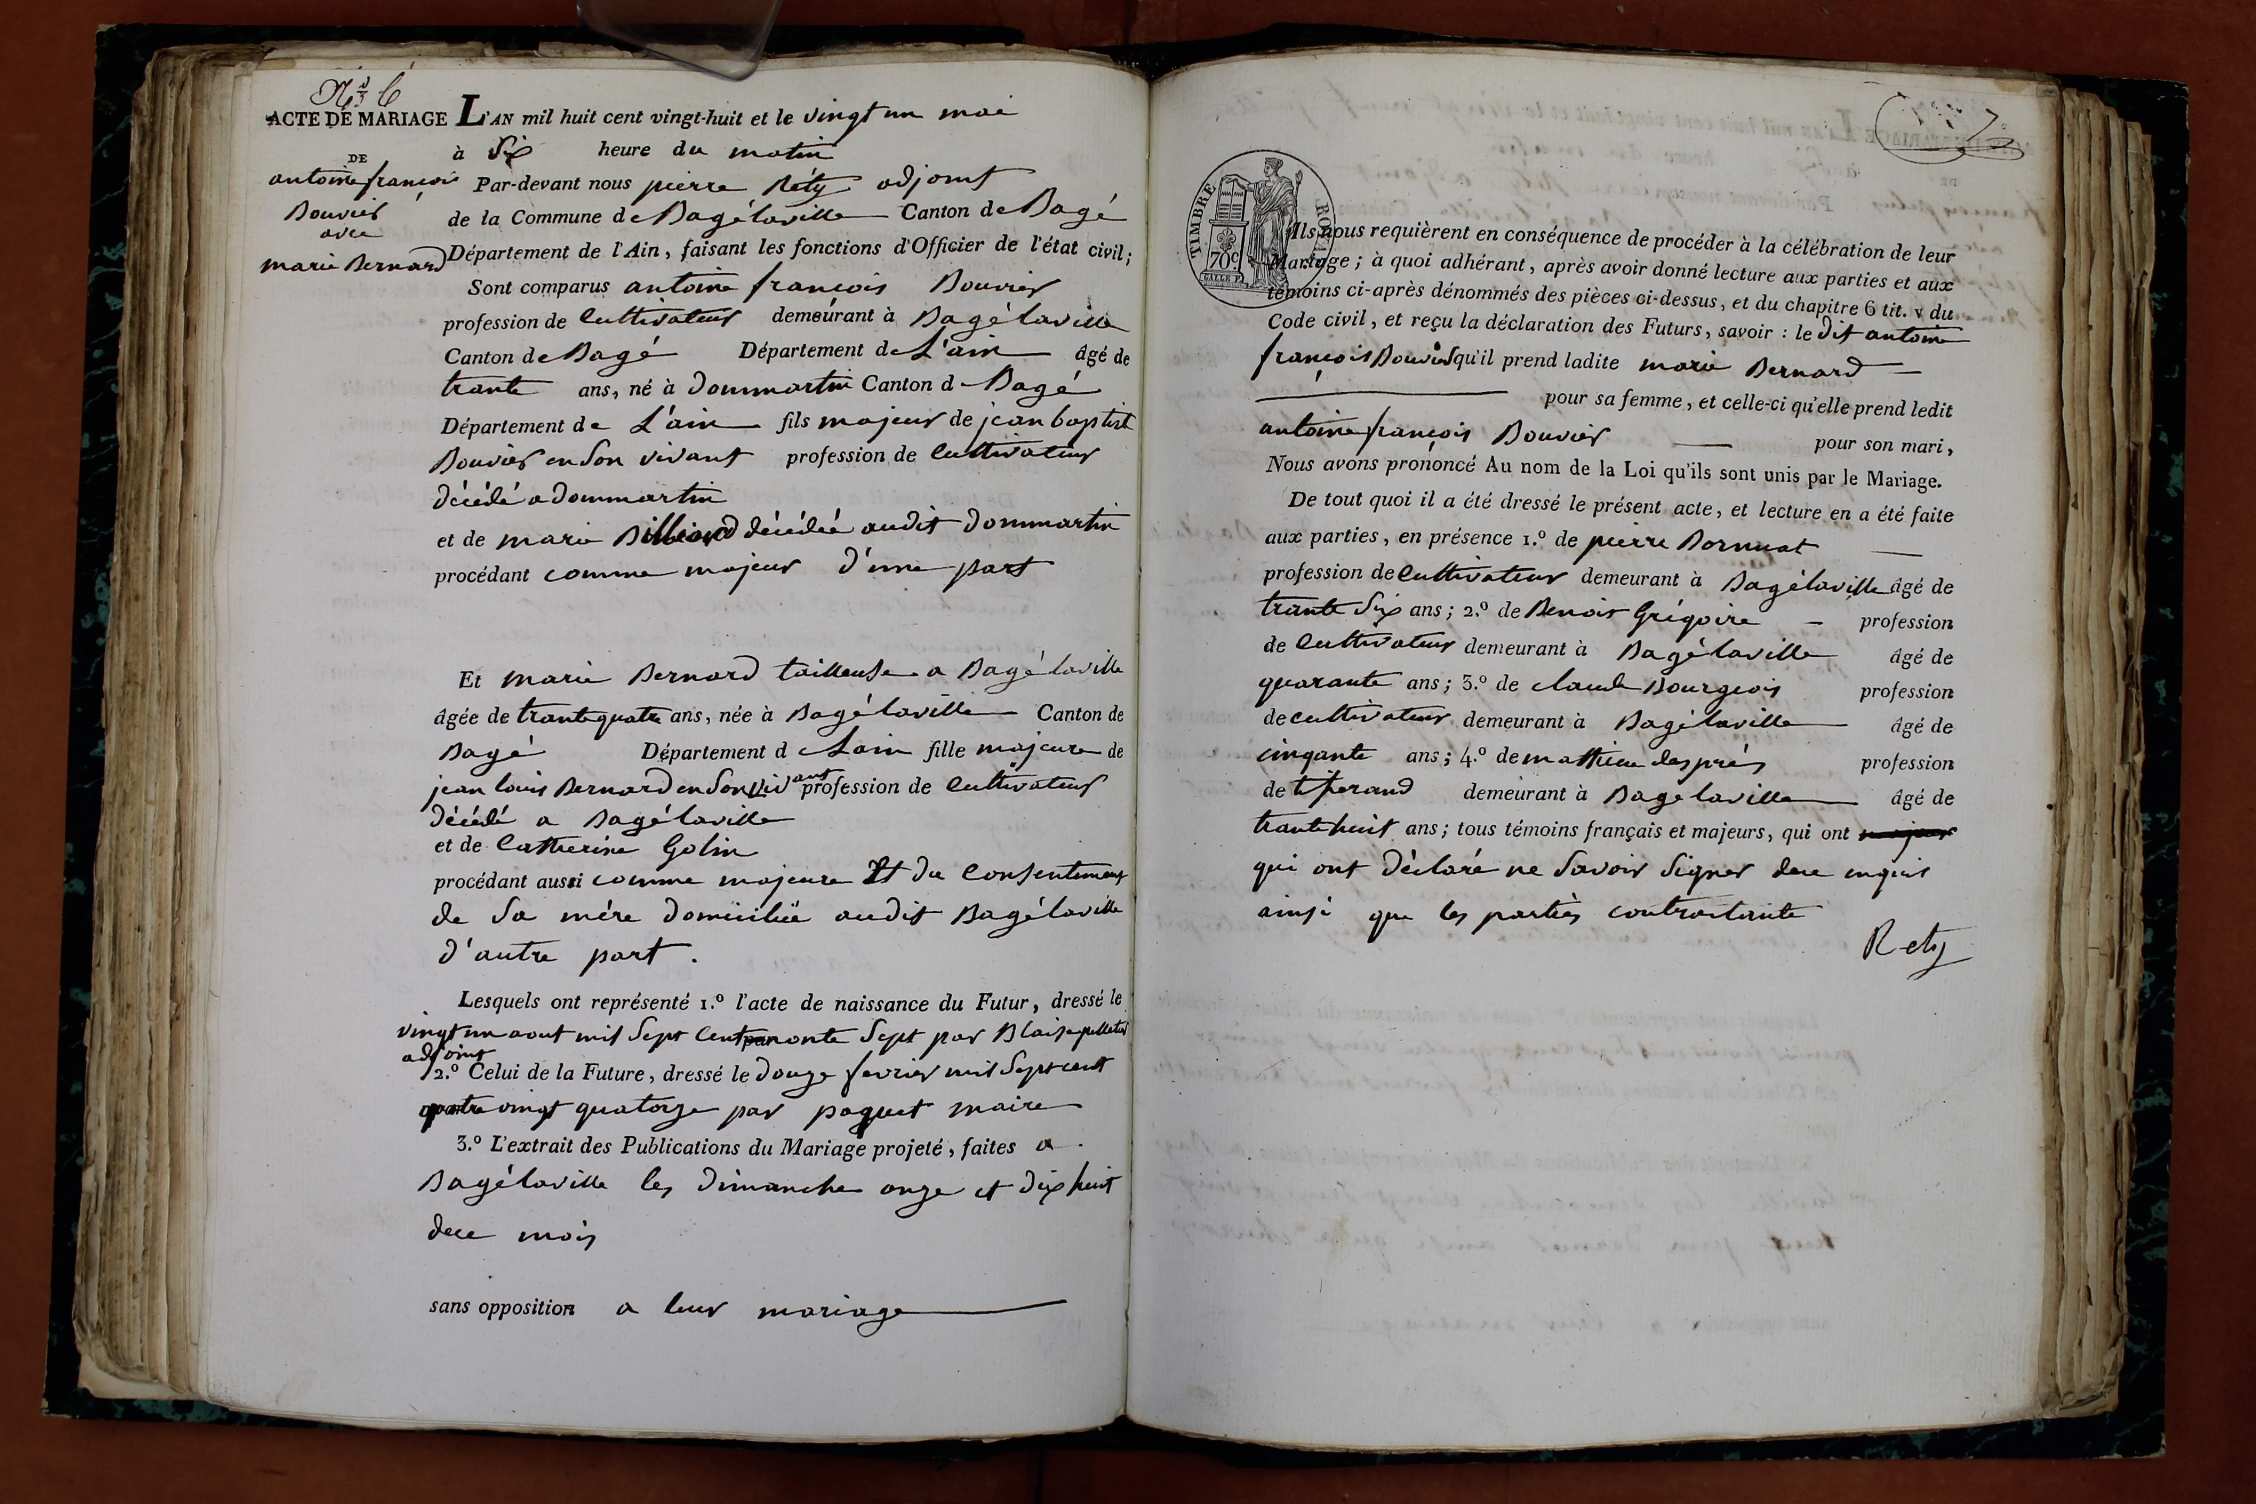 N.° 6
ACTE DE MARIAGE L'AN mil huit cent vingt-huit et le vingt un mai
DE
à Six heure du matin
antoine françois
Bouvier
avec
marie Bernard
Par-devant nous pierre Réty adjoint
de la Commune de Bagélaville Canton de Bagé
Département de l'Ain, faisant les fonctions d'Officier de l'état civil;
Sont comparus antoine françois Bouvier
profession de Cultivateur demeurant à Bagélaville
Canton de Bagé Département de L'ain âgé de
trante ans, né à dommartin Canton d Bagé
Département de L'ain fils majeur de jean baptist
Bouvier en Son vivant profession de Cultivateur
décédé a dommartin
et de marie Billiard décédée audit dommartin
procédant comme majeur d'une part
Et marie Bernard tailleuse a Bagélaville
âgée de trante quatre ans, née à Bagélaville Canton de
Bagé Département d Lain fille majeure de
jean louis Bernard en Son vivant profession de Cultivateur
décédé a Bagélaville
et de Catherine Golin
procédant aussi comme majeure Et du Consentement
de Sa mére domiciliée audit Bagélaville
d'autre part.
Lesquels ont représenté 1.° l'acte de naissance du Futur, dressé le
vingt un aout mil Sept Cent nonte Sept par Blaise pelletier
adjoint
2.° Celui de la Future, dressé le douze fevrier mil Sept cent
quatre vingt quatorze par paquet maire
3.° L'extrait des Publications du Mariage projeté, faites a
Bagélaville les dimanche onze et dix huit
dece mois
sans opposition a leur mariage
TIMBRE ROYAL
70c
Ils nous requièrent en conséquence de procéder à la célébration de leur
Mariage; à quoi adhérant, après avoir donné lecture aux parties et aux
témoins ci-après dénommés des pièces ci-dessus, et du chapitre 6 tit. v du
Code civil, et reçu la déclaration des Futurs, savoir : le dit antoine
françois Bouvier qu'il prend ladite marie Bernard
pour sa femme, et celle-ci qu'elle prend ledit
antoine françois Bouvier pour son mari,
Nous avons prononcé Au nom de la Loi qu'ils sont unis par le Mariage.
De tout quoi il a été dressé le présent acte, et lecture en a été faite
aux parties, en présence 1.° de pierre Bornuat
profession de Cultivateur demeurant à Bagélaville âgé de
trante Six ans; 2.° de Benoit Grégoire profession
de Cultivateur demeurant à Bagélaville âgé de
quarante ans; 3.° de claude Bourgeois profession
de cultivateur demeurant à Bagélaville âgé de
cinqante ans; 4.° de matthieu després profession
de tisserand demeurant à Bagelaville âgé de
trante huit ans; tous témoins français et majeurs, qui ont
qui ont déclaré ne Savoir Signer dece enquis
ainsi que les partiés contractante
Rety